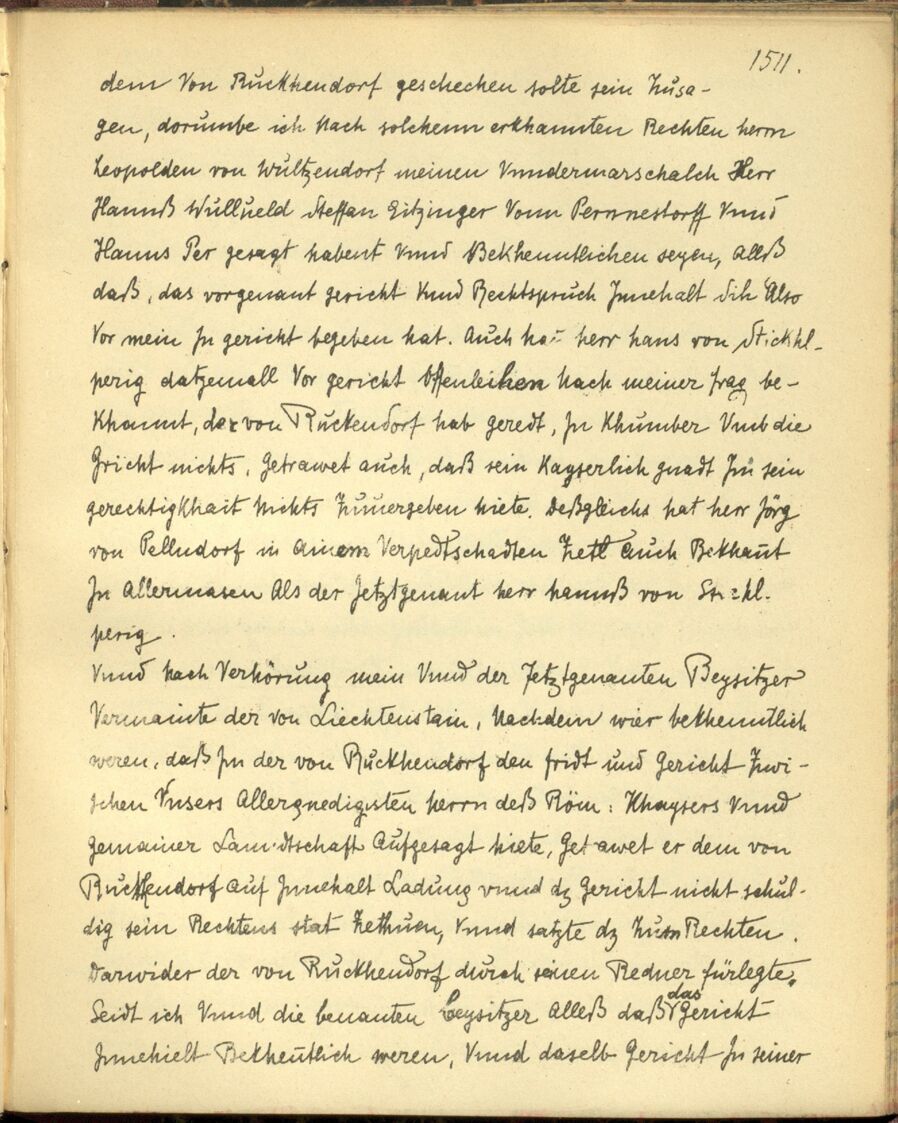 1511.
dem Von Ruckhendorf geschechen solte sein Zusa-
gen, dorumbe ich Nach solchenn erkhannten Rechten herrn
Leopolden von Wultzendorf meinen Vnndermarschalch Herr
Hannß Wullueld Steffan Eitzinger Vonn Pernnestorff Vnnd
Hanns Per gesagt habent Vnnd Bekhenntlichen seyen, Alleß
daß, das vorgenant gericht Vnnd Rechtspruch Innehalt Sih Also
Vor mein In gericht begeben hat. Auch ha herr hans von Stickhl-
perig datzemall Vor gericht Nach meiner frag be-
Khannt, der von Ruckendorf hab geredt, In Khumber Vmb die
Gricht nichts, Getrawet auch, daß sein Kayserlich gnadt Im sein
gerechtigKhait Nichts Zuuergeben hiete. Deßgleichs hat herr Jörg
von Pellndorf in ainem Verpedtschadten Zetl Auch Bekhant
In Allermasen Als der Jetztgenant herr hannß von St khl.
perig.
Vnnd Nach Verhörung mein Vnnd der Jetztgenanten Beysitzer
Vermainte der von Liechtenstain, Nachdem wier bekhenntlich
weren, daß In der von Ruckhendorf den fridt und Gericht Zwi-
schen Vnsers Allergnedigisten herrn deß Röm: Khaysers Vnnd
gemainer Landtschaft Aufgesagt hiete, Getrawet er dem von
Ruckhendorf Auf Innehalt Ladung vnnd dz Gericht nicht schul-
dig sein Rechtens stat Zethuen, Vnnd satzte dz Zum Rechten.
Darwider der von Ruckhendorf durch seinen Redner fürlegte,
Seidt ich Vnnd die benanten beysitzer Alleß daß das Gericht
Innehielt Bekhentlich weren, Vnnd daselb Gericht In seiner